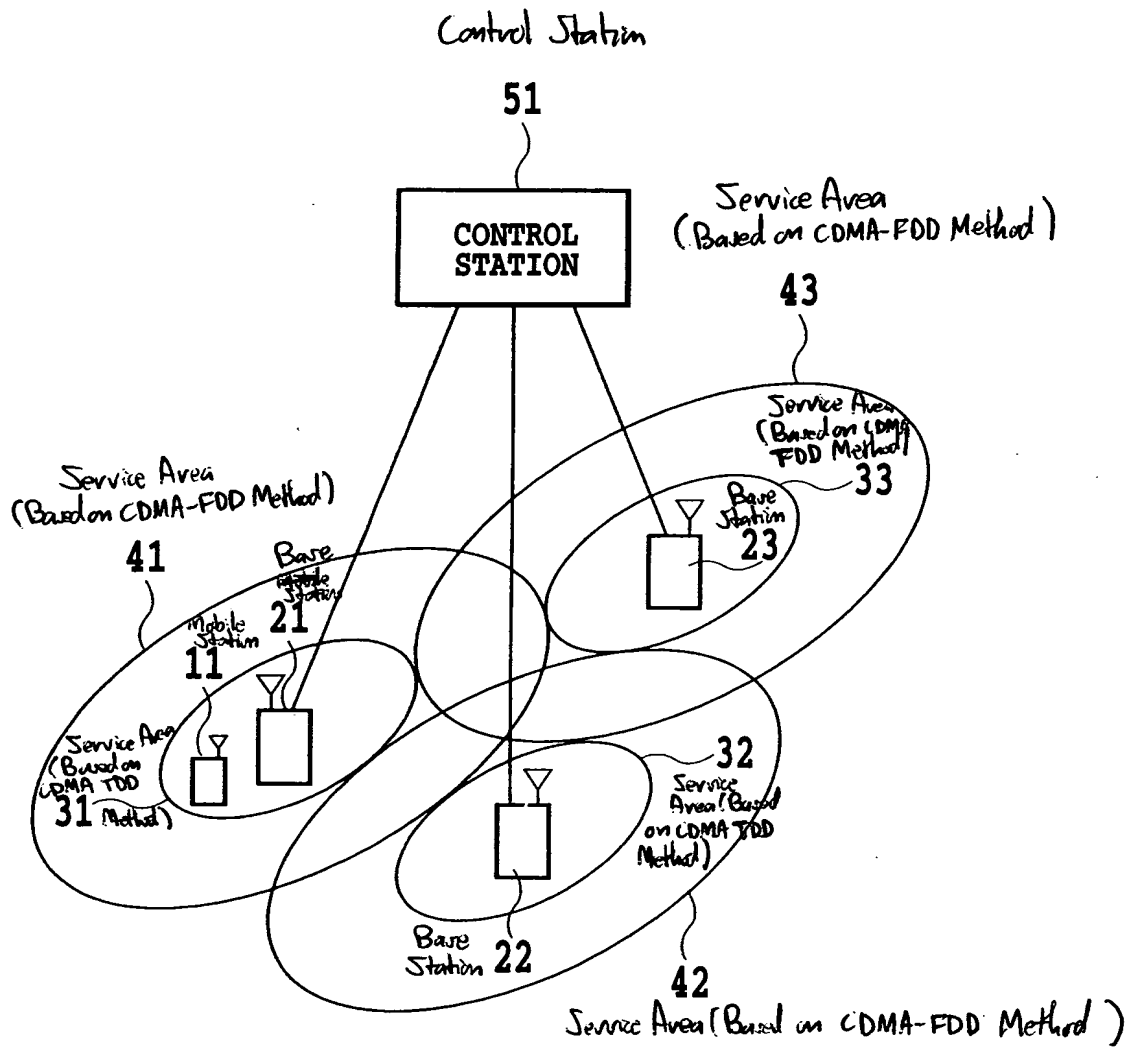 Control Station
51
CONTROL
STATION
Service Area
(Based on CDMA-FDD Method)
43
Service Area
(Based on CDMA
FDD Method)
33
Base
Station
23
Service Area
(Based on CDMA-FDD Method)
41
Base
Mobile
Station
21
Mobile
Station
11
Service Area
(Based on
CDMA TDD
31 Method)
32
Service
Area (Based
on CDMA TDD
Method)
Base
Station 22
42
Service Area (Based on CDMA-FDD Method)